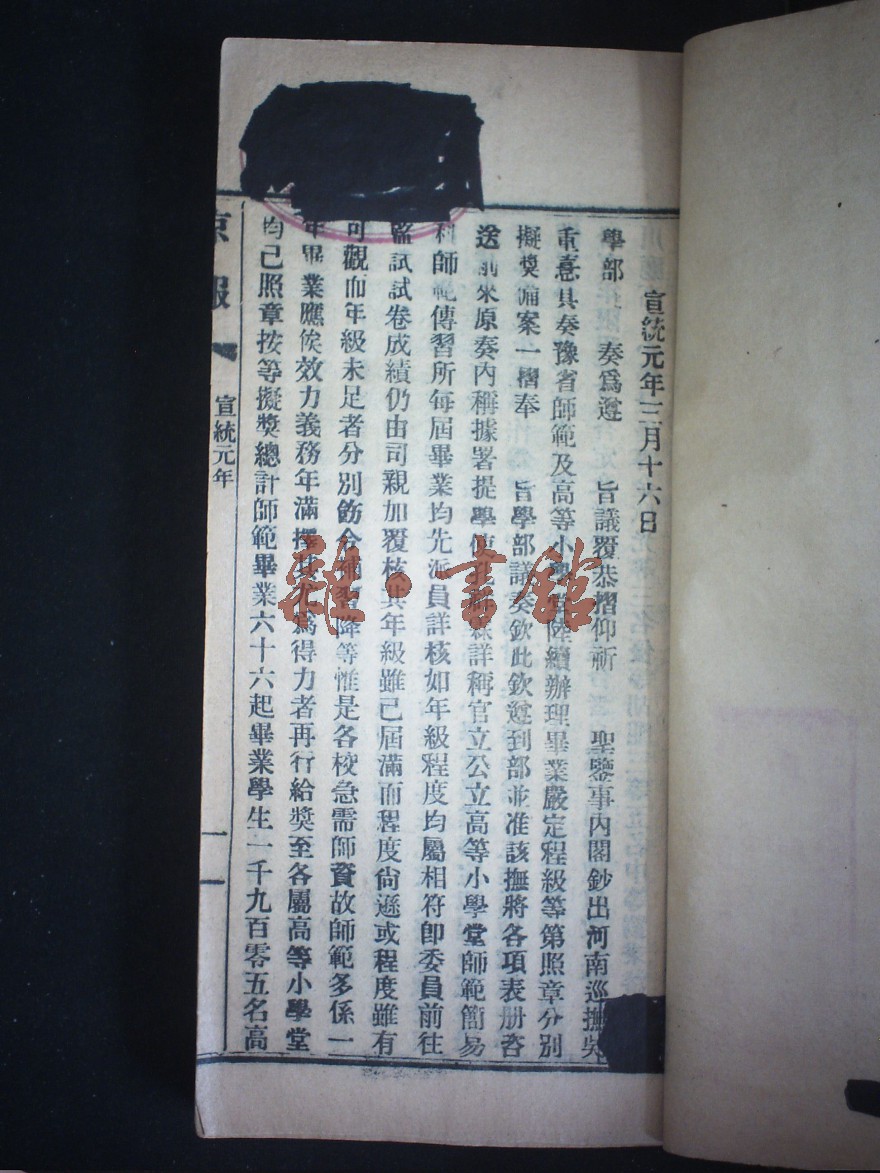 宣統元年三月十六日
學部 奏爲遵 旨議覆恭摺仰祈 聖鑒事內閣鈔出河南巡撫吳
重憙具奏豫省師範及高等小學堂陸續辦理畢業嚴定程級等第照章分別
擬獎備案一摺奉 旨學部議奏欽此欽遵到部並准該撫將各項表册咨
送前來原奏內稱據署提學使孔 詳稱官立公立高等小學堂師範簡易
科師範傳習所每屆畢業均先派員詳核如年級程度均屬相符卽委員前往
監試試卷成績仍由司親加覆核其年級雖已屆滿而程度尙遜或程度雖有
可觀而年級未足者分別飭令補習降等惟是各校急需師資故師範多係一
年畢業應俟效力義務年滿擇其尤爲得力者再行給獎至各屬高等小學堂
均已照章按等擬獎總計師範畢業六十六起畢業學生一千九百零五名高
京報 宣統元年 一
雜·書館